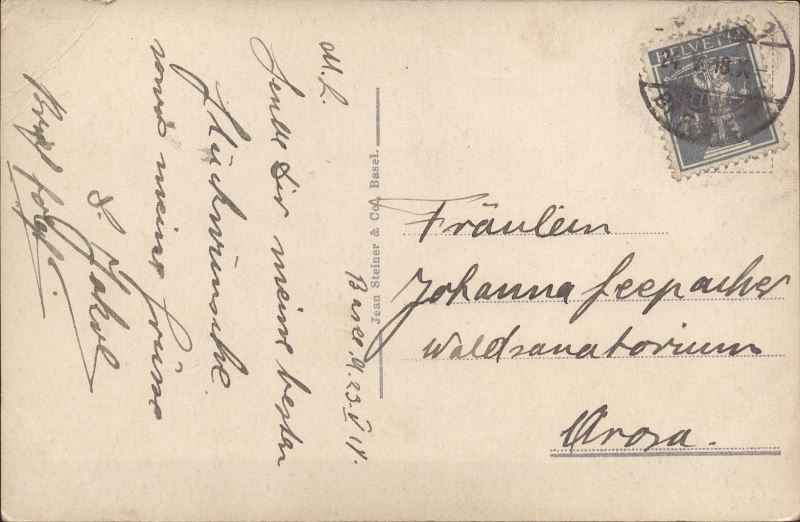 M. L.
Sende Dir meine besten
Glückwünsche
sowie meine Grüsse
J. Jakob
Brief folgt.
Basel. d. 23. V 18.
Jean Steiner & Co., Basel.
HELVETIA
24. V. 18.
Fräulein
Johanna Seepacher
Waldsanatorium
Arosa.